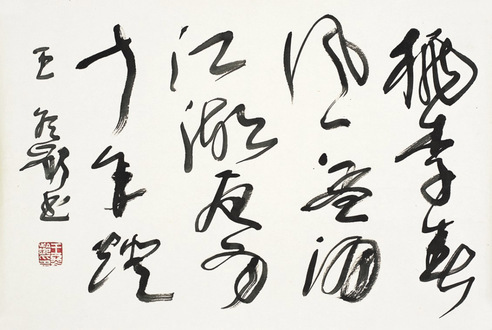 桃李春
風一盃酒
江湖夜雨
十年燈
王冬齡書